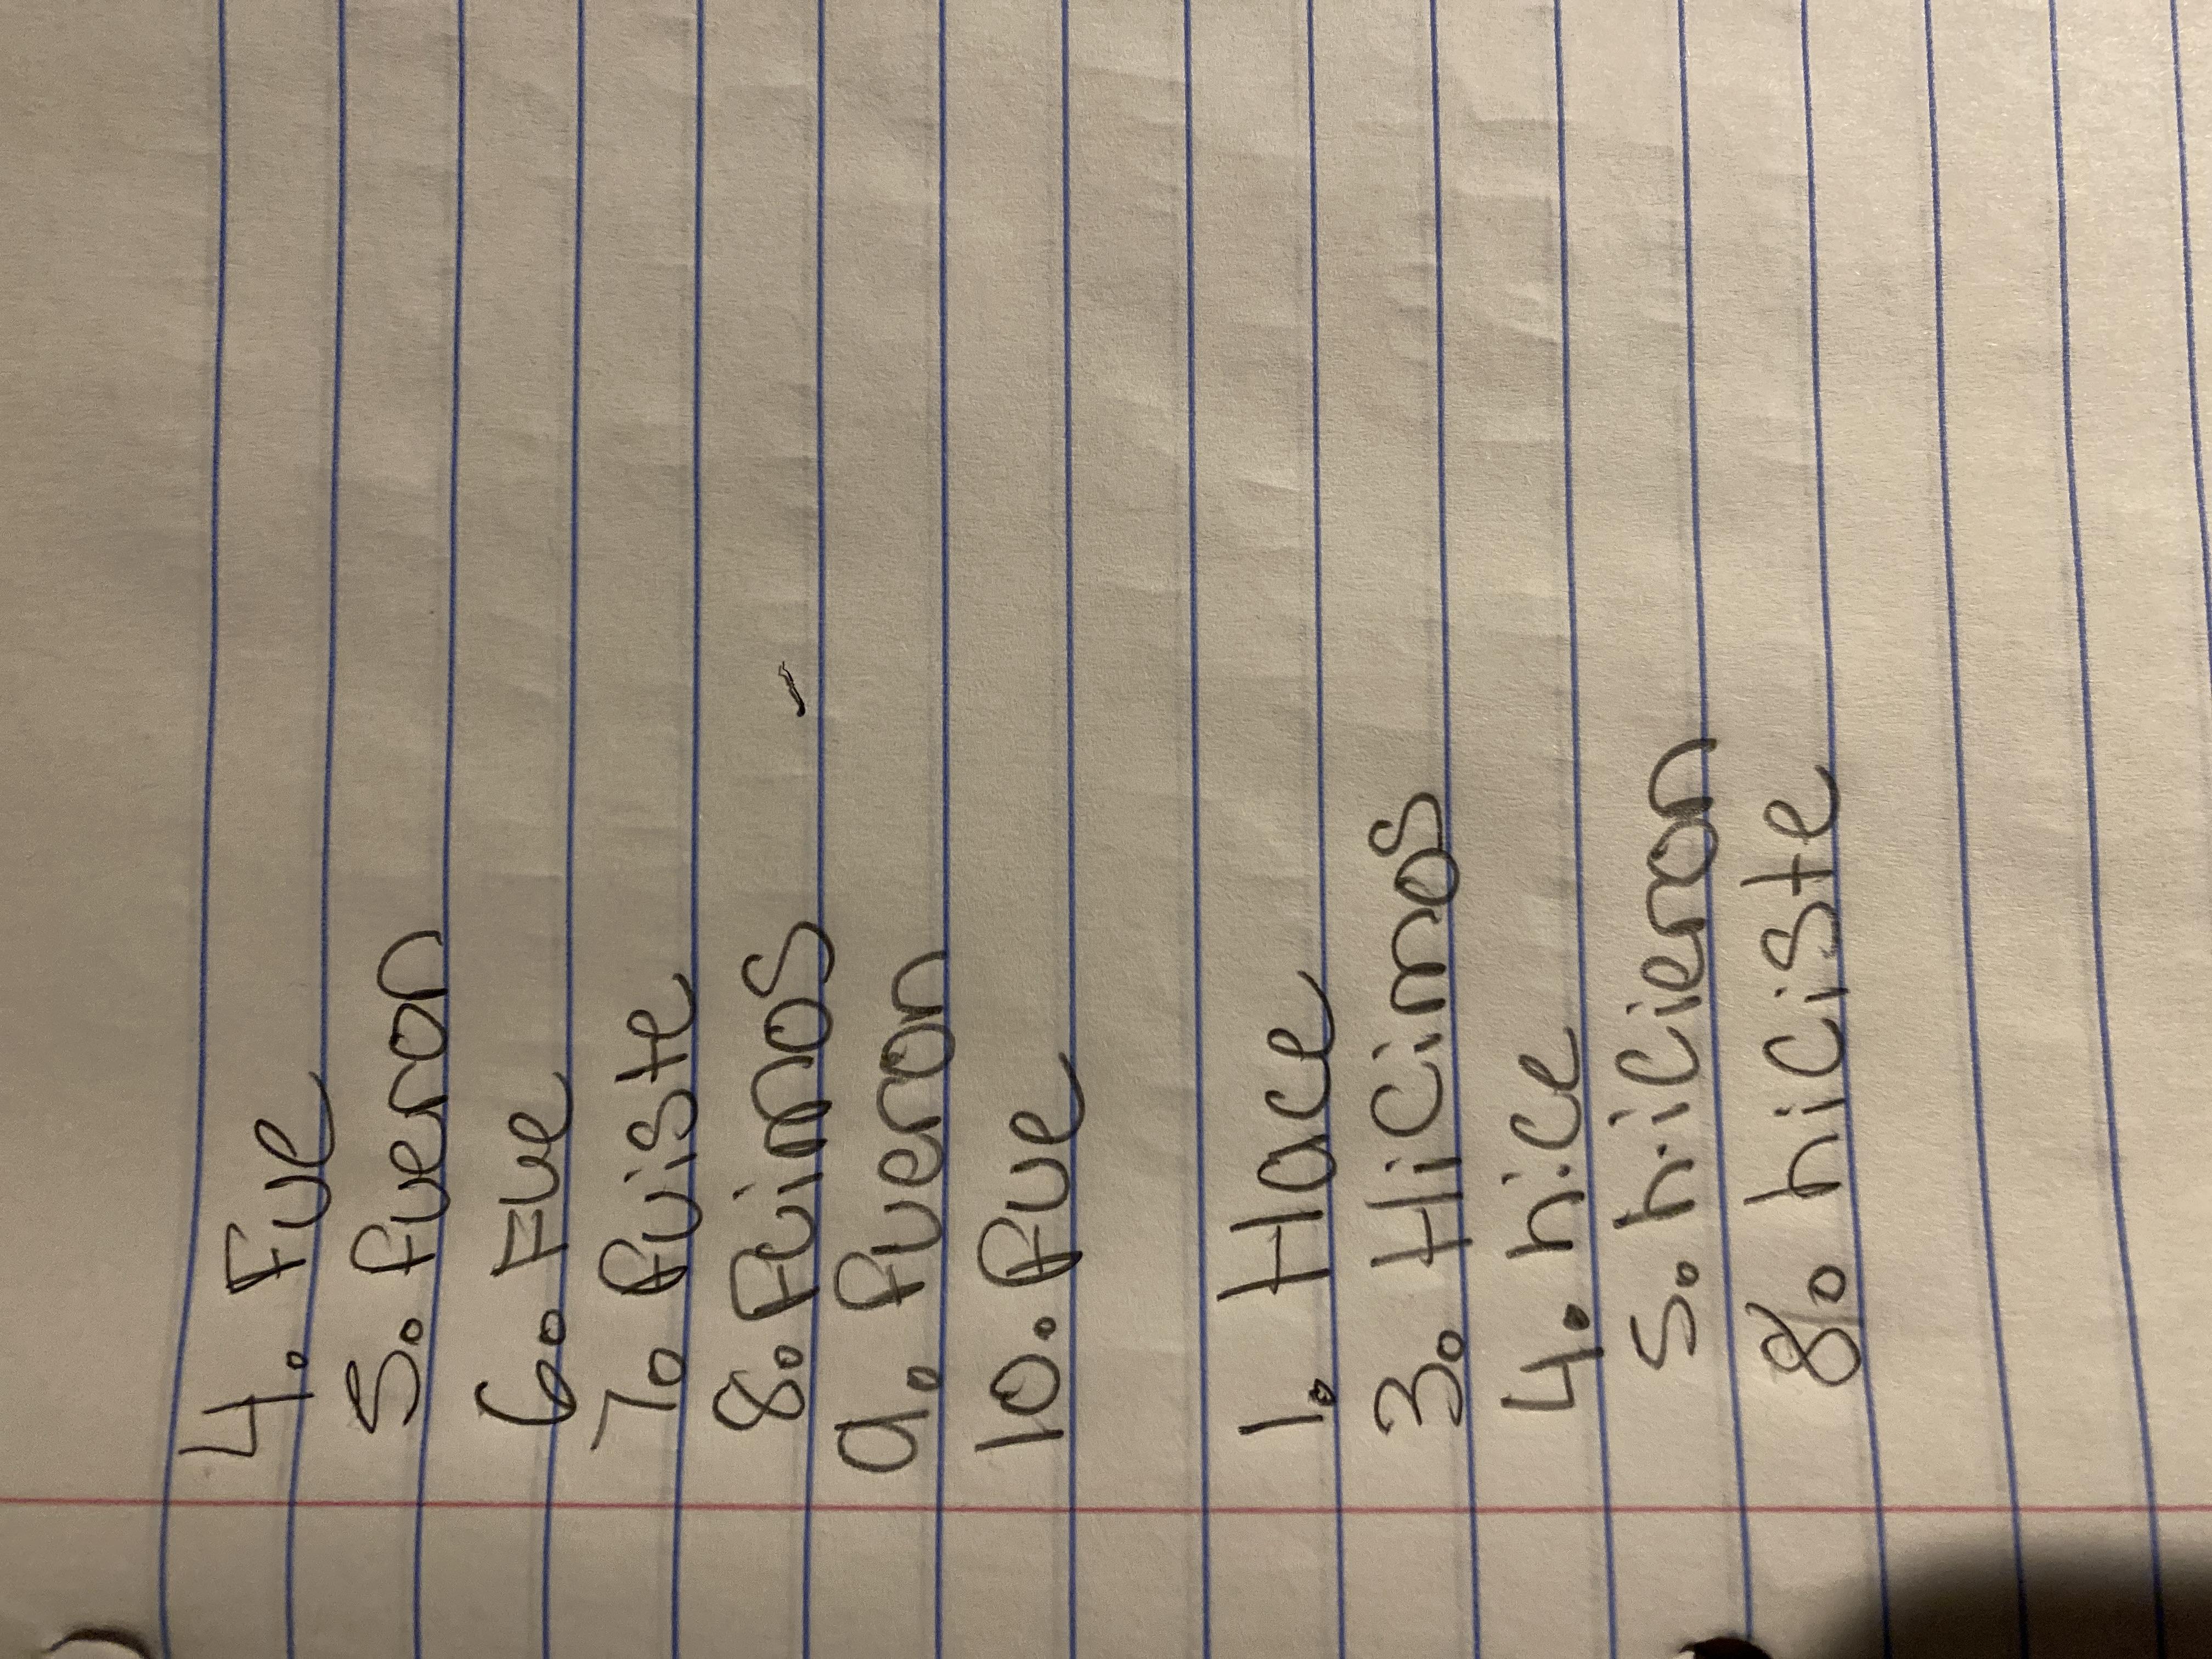 4. Fue
5. fueron
6. Fue
7. fuiste
8. Fuimos
9. fueron
10. fue
1. Hace
3. Hicimos
4. hice
5. hicieron
8. hiciste